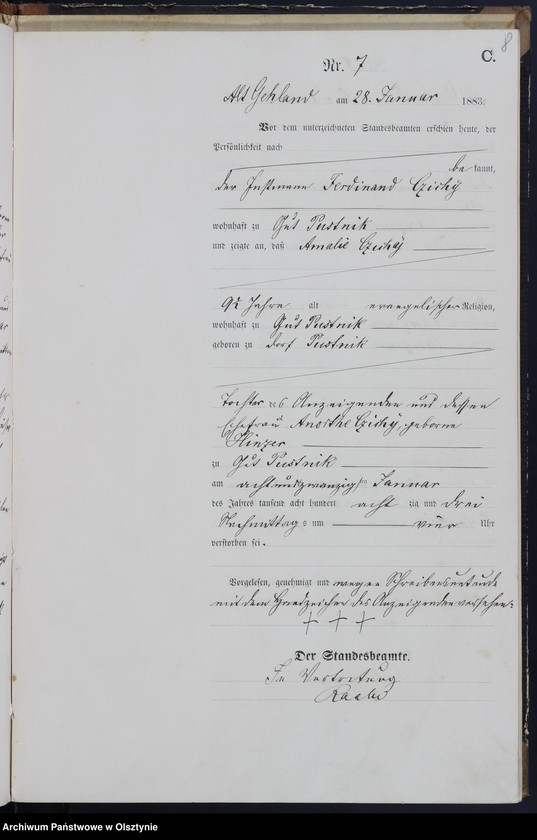 8
C.
Nr. 7
Alt Gehland am 28. Januar 1883.
Vor dem unterzeichneten Standesbeamten erschien heute, der
Persönlichkeit nach
be kannt,
der Instmann Ferdinand Czichy
wohnhaft zu Gut Pustnik
und zeigte an, daß Amalie Czichy
alt evangelischer Religion,
wohnhaft zu Gut Pustnik
geboren zu Dorf Pustnik
Tochter des Anzeigenden und dessen
Ehefrau Czichy, geborne
zu Gut Pustnik
am achtundzwanzigsten Januar
des Jahres tausend acht hundert acht zig und drei
Nachmittags um vier Uhr
verstorben sei.
Vorgelesen, genehmigt und wegen Schreibensunkunde
mit dem Handzeichen des Anzeigenden versehen.
+ + +
Der Standesbeamte.
In Vertretung
Archiwum Państwowe w Olsztynie